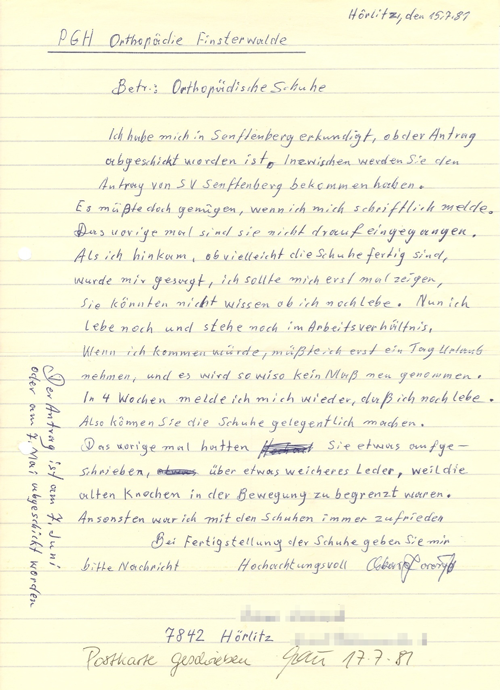 Hörlitz, den 15.7.81
PGH Orthopädie Finsterwalde
Betr.: Orthopädische Schuhe
Ich habe mich in Senftenberg erkundigt, ob der Antrag
abgeschickt worden ist. Inzwischen werden Sie den
Antrag von SV Senftenberg bekommen haben.
Es müßte doch genügen, wenn ich mich schriftlich melde.
Das vorige mal sind sie nicht drauf eingegangen.
Als ich hinkam, ob vielleicht die Schuhe fertig sind,
wurde mir gesagt, ich sollte mich erst mal zeigen,
sie könnten nicht wissen ob ich noch lebe. Nun ich
lebe noch und stehe noch im Arbeitsverhältnis,
Wenn ich kommen würde, müßte ich erst ein Tag Urlaub
nehmen, und es wird sowiso kein Maß neu genommen.
In 4 Wochen melde ich mich wieder, daß ich noch lebe.
Also können Sie die Schuhe gelegentlich machen.
Das vorige mal hatten Sie etwas aufge-
schrieben, über etwas weicheres Leder, weil die
alten Knochen in der Bewegung zu begrenzt waren.
Ansonsten war ich mit den Schuhen immer zufrieden
Bei Fertigstellung der Schuhe geben Sie mir
bitte Nachricht Hochachtungsvoll
7842 Hörlitz
Postkarte geschrieben 17.7.81
Der Antrag ist am 7. Juni
oder am 7. Mai abgeschickt worden